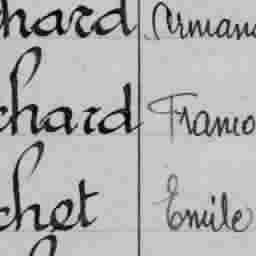 hard Arman
chard Franço
chet Emile